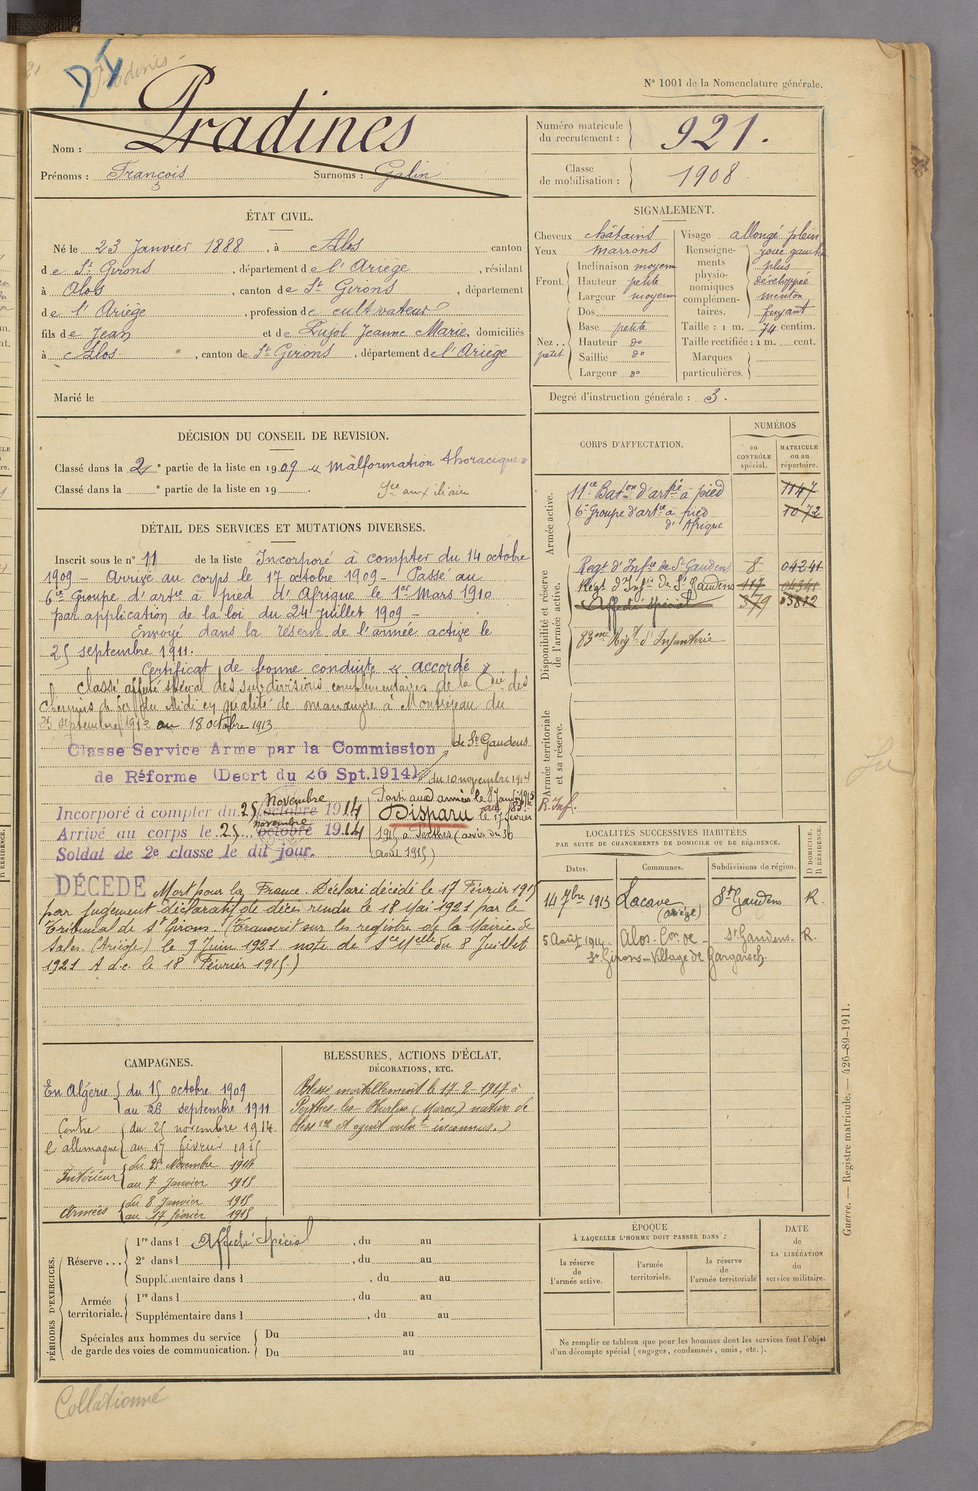 DI
Pradinès
Nº 1001 de la Nomenclature générale.
Nom : Pradines
Prénoms : François Surnoms : Galin
Numéro matricule du recrutement : 921.
Classe de mobilisation : 1908
ÉTAT CIVIL.
Né le 23 Janvier 1888, à Alos canton
de St Girons, département de l'Ariège, résidant
à Alos, canton de St Girons, département
de l'Ariège, profession de cultivateur
fils de Jean et de Pujol Jeanne Marie, domiciliés
à Alos, canton de St Girons, département de l'Ariège
Marié le
SIGNALEMENT.
Cheveux châtains
Yeux marrons
Front. Inclinaison moyenne
Hauteur petite
Largeur moyenne
Nez.. petit Dos
Base petite
Hauteur do
Saillie do
Largeur do
Visage allongé plein
Renseignements physionomiques complémentaires. joue gauche plus développée menton fuyant
Taille : 1 m. 74 centim.
Taille rectifiée : 1 m. cent.
Marques particulières.
Degré d'instruction générale : 3.
DÉCISION DU CONSEIL DE REVISION.
Classé dans la 2e partie de la liste en 1909 « malformation thoracique »
Classé dans la e partie de la liste en 19 . Sce auxiliaire
DÉTAIL DES SERVICES ET MUTATIONS DIVERSES.
Inscrit sous le nº 11 de la liste Incorporé à compter du 14 octobre
1909 - Arrivé au corps le 17 octobre 1909 - Passé au
6e Groupe d'artie à pied d'Afrique le 1er Mars 1910
par application de la loi du 24 Juillet 1909 -
Envoyé dans la réserve de l'armée active le
25 septembre 1911.
Certificat de bonne conduite « accordé »
Classé affecté spécial des subdivisions complémentaires de la Cie des
Chemins de fer du Midi en qualité de manœuvre à Montrejeau du
25 septembre 1912 au 18 octobre 1913
Classe Service Arme par la Commission de St Gaudens
de Réforme (Decrt du 26 Spt.1914) du 10 novembre 1914
Incorporé à compter du 25 octobre novembre 1914
Arrivé au corps le 25 octobre novembre 1914
Soldat de 2e classe le dit jour.
Parti aux armées le 8 Janvier 1915
au 83e
Disparu le 17 février
1915 à Perthes (avis du 30
août 1915)
DÉCÉDÉ Mort pour la France. Déclaré décédé le 17 Février 1915
par jugement déclaratif de décès rendu le 18 Mai 1921 par le
Tribunal de St Girons. (Transcrit sur les registres de la Mairie de
Salès (Ariège) le 9 Juin 1921 note de du 8 Juillet
1921 A d.c. le 18 Février 1915.)
CORPS D'AFFECTATION.
NUMÉROS
au CONTRÔLE spécial.
MATRICULE ou au répertoire.
Armée active.
11e Baton d'artie à pied 1147
6e Groupe d'artie à pied d'Afrique 1072
Disponibilité et réserve de l'armée active.
Regt d'Infie de St Gaudens 8 04241
Regt d'Infie de St Gaudens 117 04341
Affecté spécial 879 03812
83eme Regt d'Infanterie
Armée territoriale et sa réserve.
R. Inf.
LOCALITÉS SUCCESSIVES HABITÉES
PAR SUITE DE CHANGEMENTS DE DOMICILE OU DE RÉSIDENCE.
Dates. Communes. Subdivisions de région. D DOMICILE. R RÉSIDENCE.
14 7bre 1913 Lacave (Ariège) St Gaudens R.
5 Août 1914 Alos. Con de St Girons - Village de St Gaudens. R.
CAMPAGNES.
En Algérie du 15 octobre 1909
au 26 septembre 1911
Contre l'allemagne du 25 novembre 1914
au 17 février 1915
Intérieur du 25 Novembre 1914
au 7 Janvier 1915
Armées du 8 Janvier 1915
au 17 février 1915
BLESSURES, ACTIONS D'ÉCLAT,
DÉCORATIONS, ETC.
Blessé mortellement le 17-2-1917 à
Perthes-les-Hurlus (Marne) nature de
bless et agent vuln inconnus.)
PÉRIODES D'EXERCICES.
Réserve ... 1re dans l Affecté Spécial, du au
2e dans l , du au
Supplémentaire dans l , du au
Armée territoriale. 1re dans l , du au
Supplémentaire dans l , du au
Spéciales aux hommes du service de garde des voies de communication. Du au
Du au
ÉPOQUE
À LAQUELLE L'HOMME DOIT PASSER DANS :
la réserve de l'armée active.
l'armée territoriale.
la réserve de l'armée territoriale
DATE de LA LIBÉRATION du service militaire.
Ne remplir ce tableau que pour les hommes dont les services font l'objet
d'un décompte spécial (engagés, condamnés, omis, etc.).
Guerre. — Registre matricule. — 426-89-1911.
Collationné